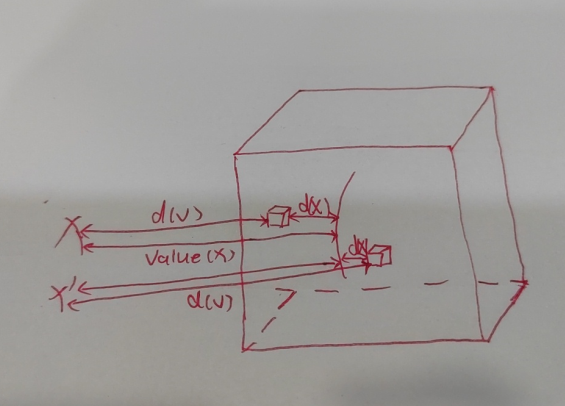 d(v)
d(x)
X
Value(x)
d(x)
X'
d(v)